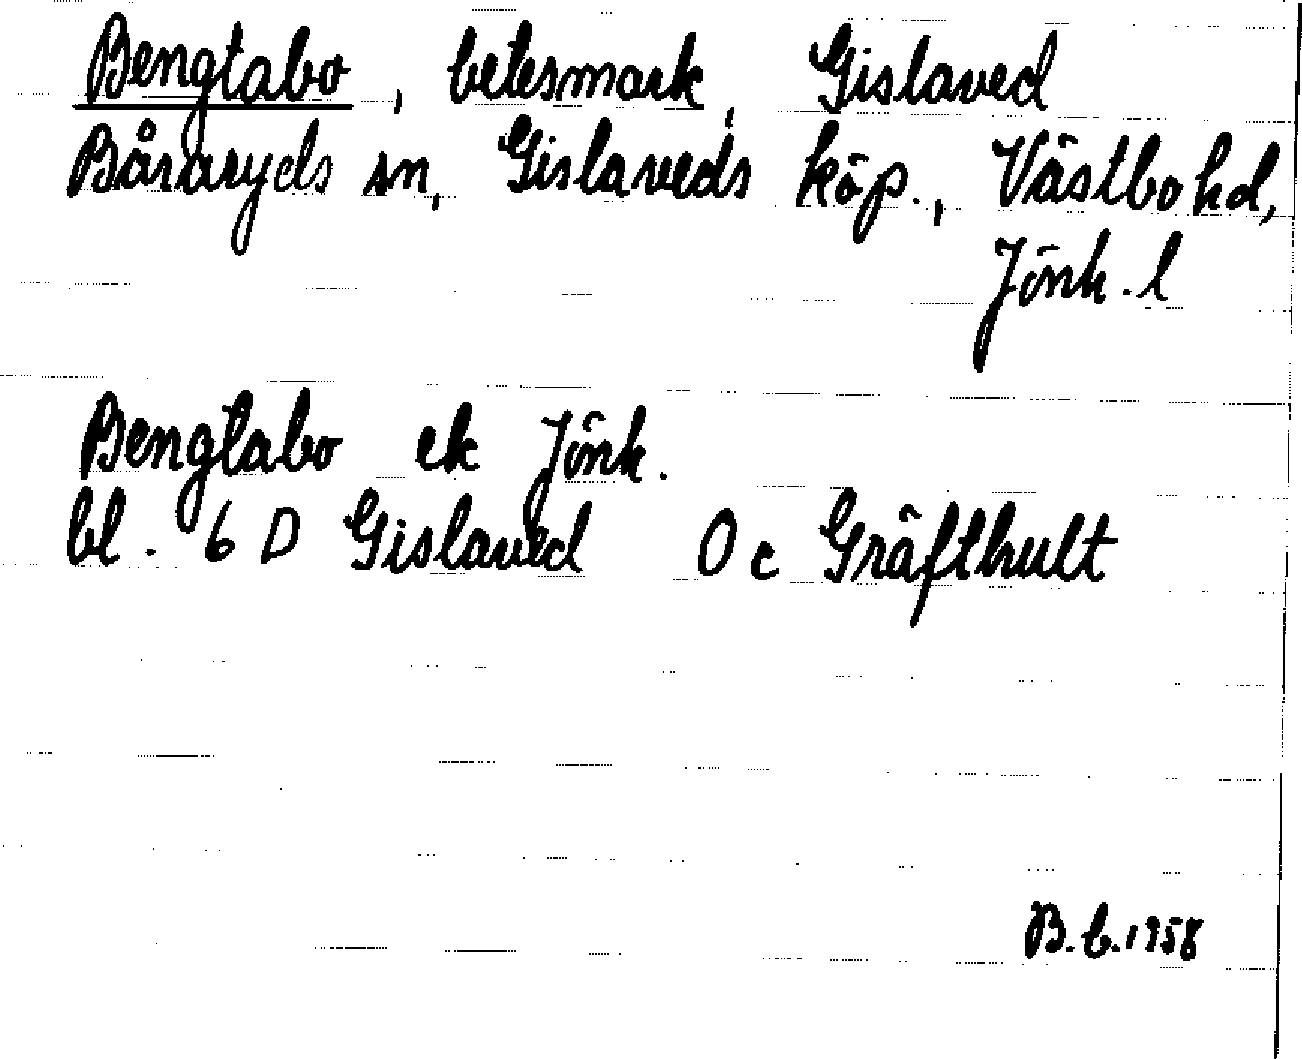 Bengtabo, betesmark, Gislaved
Båraryds sn, Gislaveds köp., Västbo hd,
Jönk. l
Bengtabo ek Jönk.
bl. 6 D Gislaved 0 c Gräfthult
B. 1958